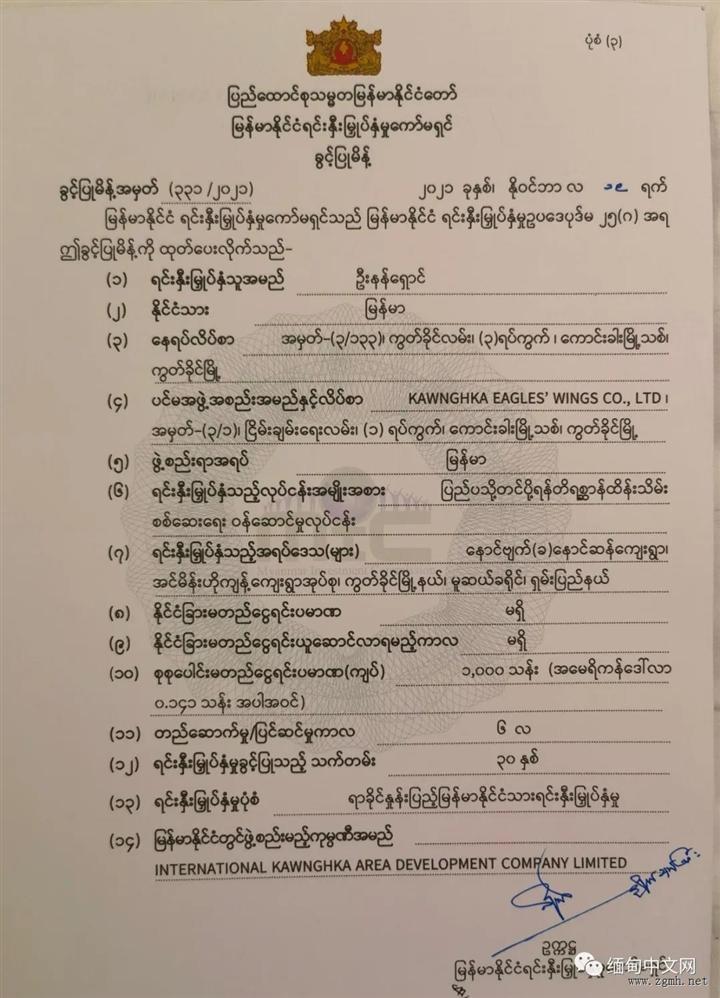 ပုံစံ (၃)
ပြည်ထောင်စုသမ္မတမြန်မာနိုင်ငံတော်
မြန်မာနိုင်ငံရင်းနှီးမြှုပ်နှံမှုကော်မရှင်
ခွင့်ပြုမိန့်
ခွင့်ပြုမိန့်အမှတ် (၃၃၁ /၂၀၂၁) ၂၀၂၁ ခုနှစ်၊ နိုဝင်ဘာ လ ရက်
မြန်မာနိုင်ငံ ရင်းနှီးမြှုပ်နှံမှုကော်မရှင်သည် မြန်မာနိုင်ငံ ရင်းနှီးမြှုပ်နှံမှုဥပဒေပုဒ်မ ၂၅(ဂ) အရ
ဤခွင့်ပြုမိန့်ကို ထုတ်ပေးလိုက်သည်-
(၁) ရင်းနှီးမြှုပ်နှံသူအမည် ဦးနန်ရှောင်
(၂) နိုင်ငံသား မြန်မာ
(၃) နေရပ်လိပ်စာ အမှတ်-(၃/၁၃၃)၊ ကွတ်ခိုင်လမ်း၊ (၃)ရပ်ကွက် ၊ ကောင်းခါးမြို့သစ်၊
ကွတ်ခိုင်မြို့
(၄) ပင်မအဖွဲ့အစည်းအမည်နှင့်လိပ်စာ KAWNGHKA EAGLES' WINGS CO., LTD ၊
အမှတ်-(၃/၁)၊ ငြိမ်းချမ်းရေးလမ်း၊ (၁) ရပ်ကွက်၊ ကောင်းခါးမြို့သစ်၊ ကွတ်ခိုင်မြို့
(၅) ဖွဲ့စည်းရာအရပ် မြန်မာ
(၆) ရင်းနှီးမြှုပ်နှံသည့်လုပ်ငန်းအမျိုးအစား ပြည်ပသို့တင်ပို့ရန်တိရစ္ဆာန်ထိန်းသိမ်း
စစ်ဆေးရေး ဝန်ဆောင်မှုလုပ်ငန်း
(၇) ရင်းနှီးမြှုပ်နှံသည့်အရပ်ဒေသ(များ) နောင်ဗျက်(ခ)နောင်ဆန်ကျေးရွာ၊
အင်မိန်းဟိုကျန့်ကျေးရွာအုပ်စု၊ ကွတ်ခိုင်မြို့နယ်၊ မူဆယ်ခရိုင်၊ ရှမ်းပြည်နယ်
(၈) နိုင်ငံခြားမတည်ငွေရင်းပမာဏ မရှိ
(၉) နိုင်ငံခြားမတည်ငွေရင်းယူဆောင်လာရမည့်ကာလ မရှိ
(၁၀) စုစုပေါင်းမတည်ငွေရင်းပမာဏ(ကျပ်) ၁,၀၀၀ သန်း (အမေရိကန်ဒေါ်လာ
၀.၁၄၁ သန်း အပါအဝင်)
(၁၁) တည်ဆောက်မှု/ပြင်ဆင်မှုကာလ ၆ လ
(၁၂) ရင်းနှီးမြှုပ်နှံမှုခွင့်ပြုသည့် သက်တမ်း ၃၀ နှစ်
(၁၃) ရင်းနှီးမြှုပ်နှံမှုပုံစံ ရာခိုင်နှုန်းပြည့်မြန်မာနိုင်ငံသားရင်းနှီးမြှုပ်နှံမှု
(၁၄) မြန်မာနိုင်ငံတွင်ဖွဲ့စည်းမည့်ကုမ္ပဏီအမည်
INTERNATIONAL KAWNGHKA AREA DEVELOPMENT COMPANY LIMITED
ဥက္ကဋ္ဌ
မြန်မာနိုင်ငံရင်းနှီးမြှုပ်နှံမှုကော်မရှင်
缅甸中文网
www.zgmh.net